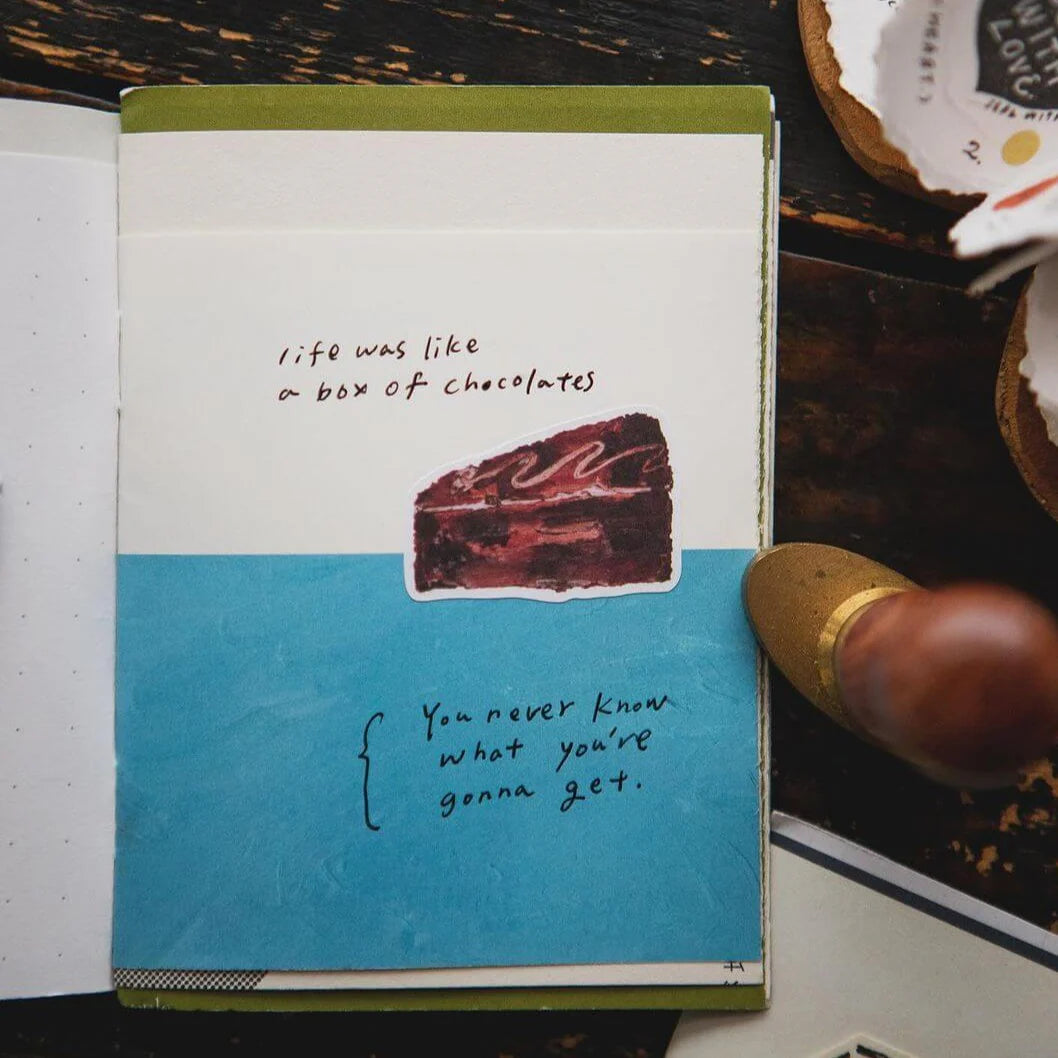 life was like
a box of chocolates
You never know
what you're
gonna get.
WITH
LOVE
2.